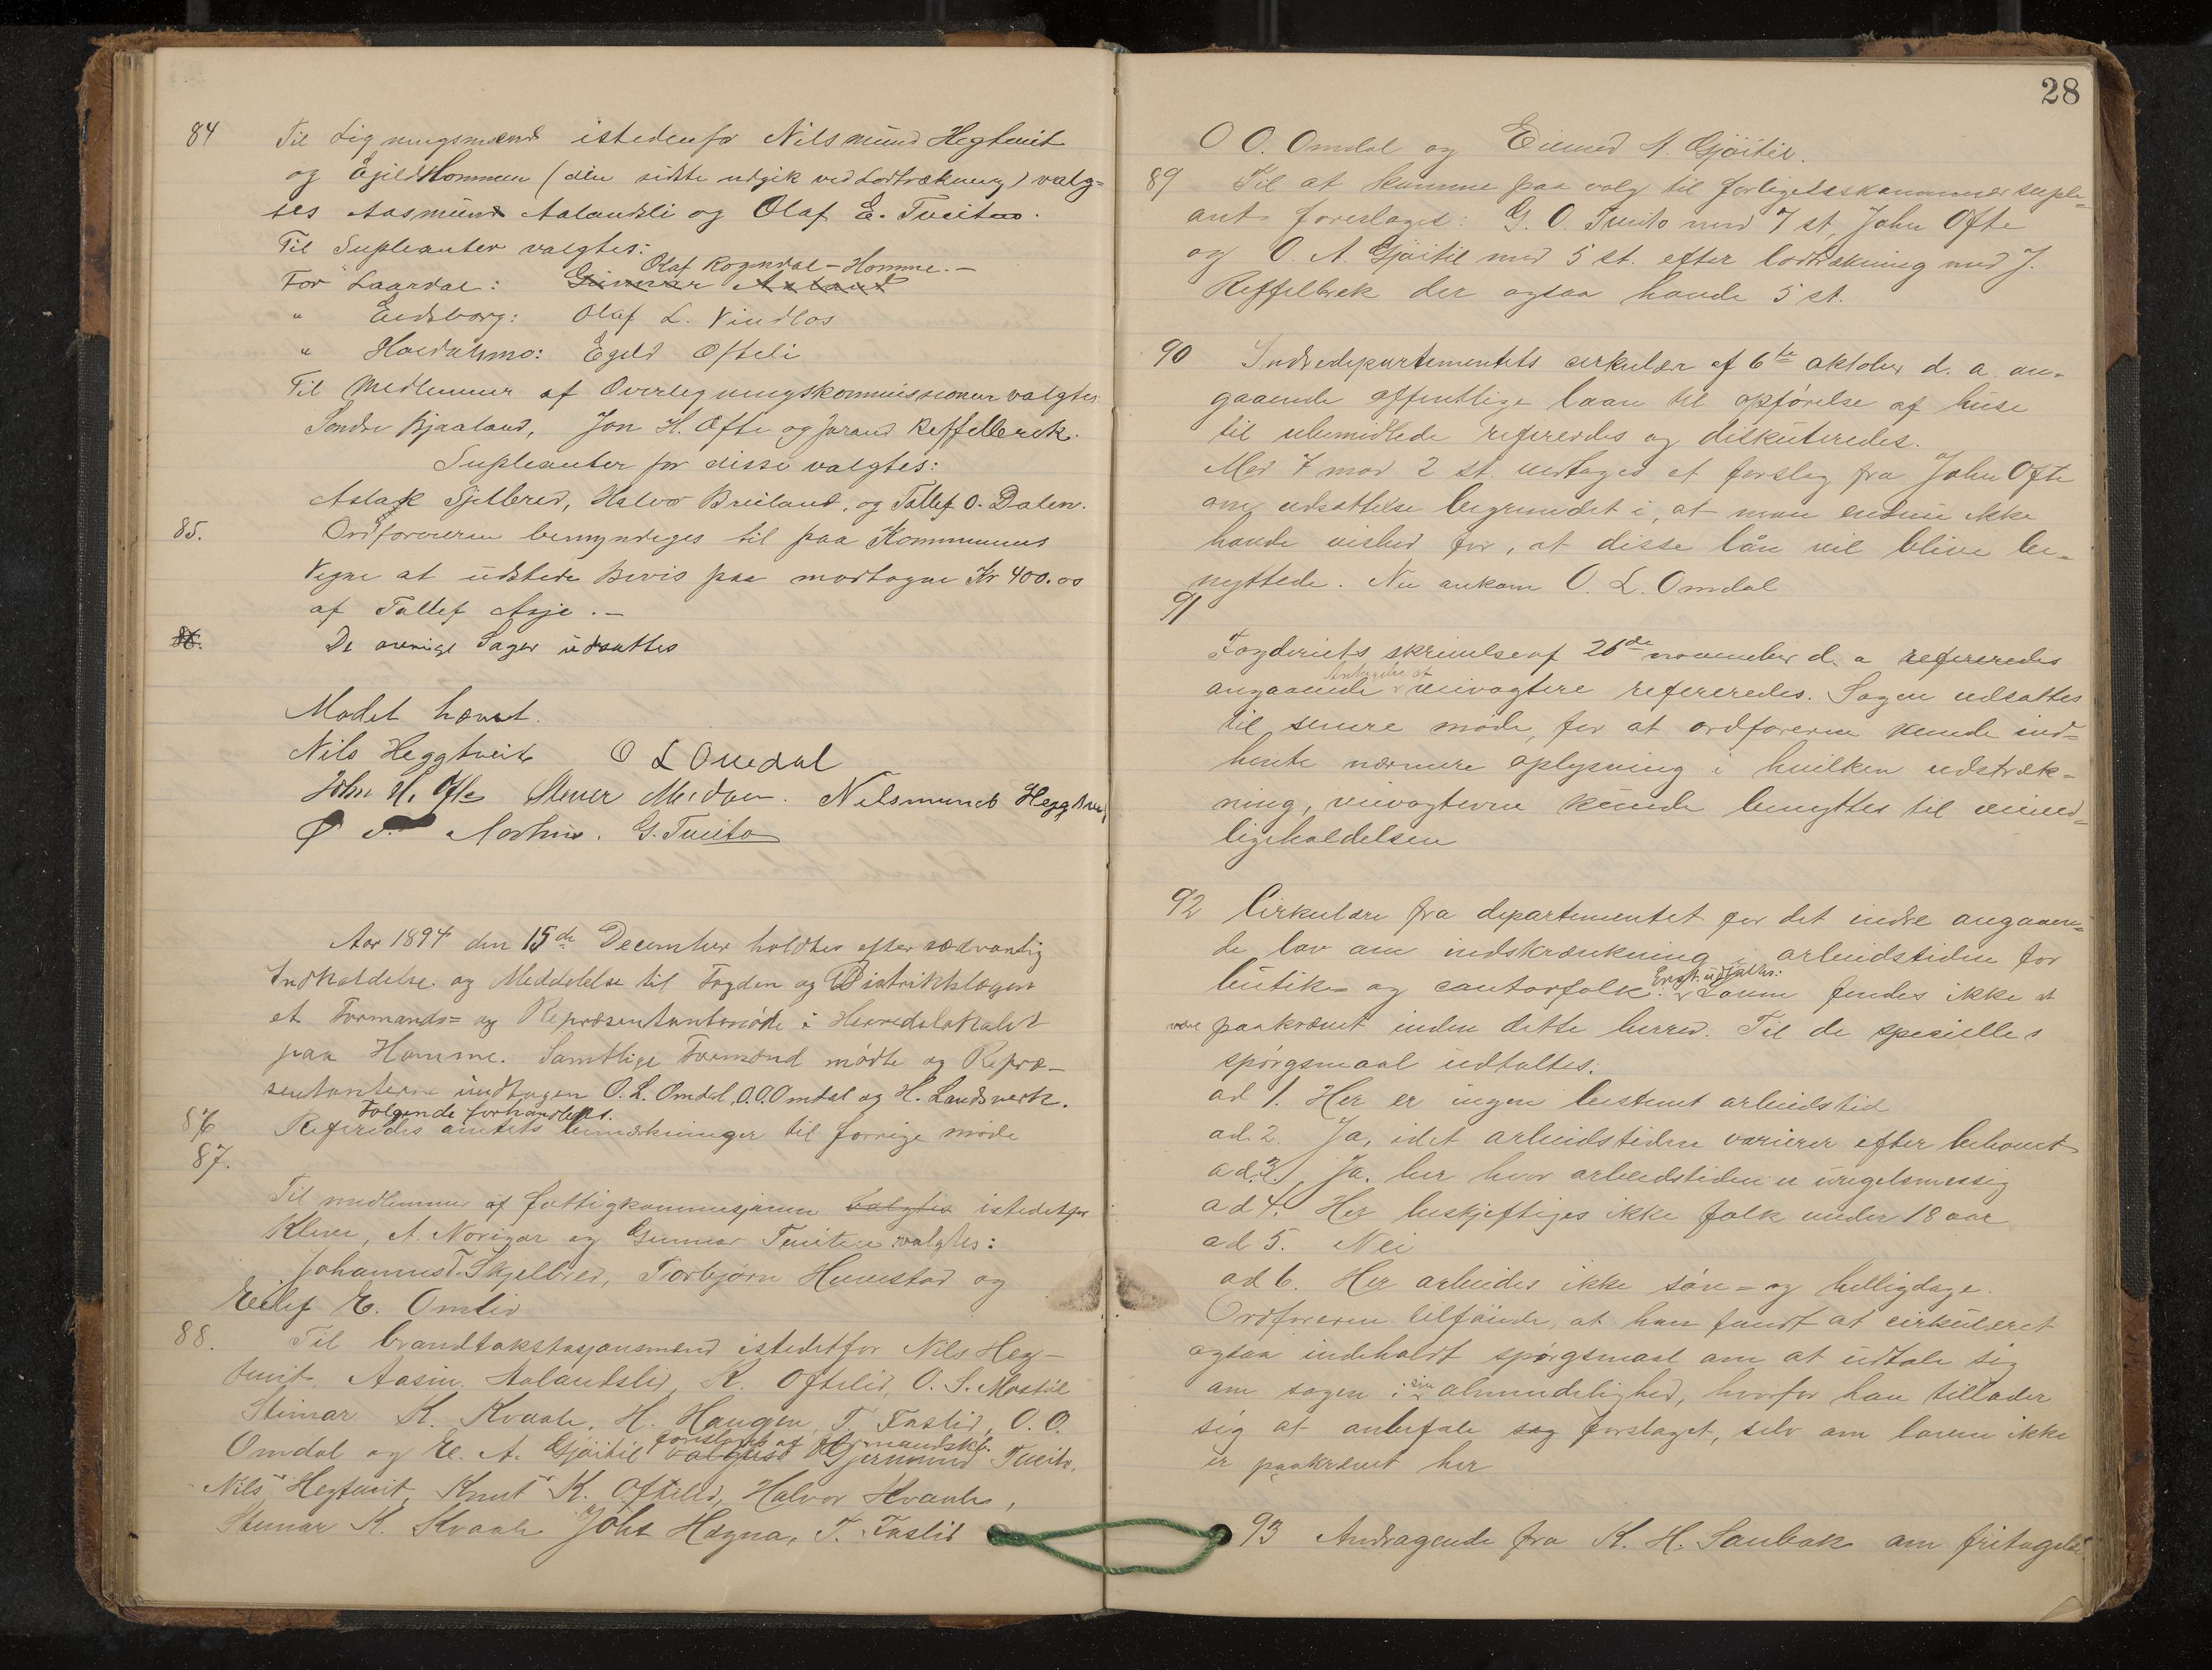 84 Til Ligningsmænd istedenfor Nilsmund Hegtveit
og Egild Hommen (den sidste udgik ved Lodtrækning) valg-
tes Aasmund Aalandsli og Olaf E. Tveiten.
Til Supleanter valgtes:
Olaf Rogndal-Homme.-
For Laardal: Gunnar Aaland
" Eidsborg: Olaf L. Vindlos
" Høidalsmo: Egild Ofteli
Til Medlemmer af Overligningskommissionen valgtes
Sondre Bjaaland, Jon H. Ofte og Jorand Reffelbrek.
Supleanter for disse valgtes:
Aslak Sjelbred, Halvor Breiland, og Tallef O. Dalen.
85. Ordføreren bemyndiges til paa Kommunens
Vegne at udstede Bevis paa modtagne Kr 400.00
af Tallef Asje.-
86. De øvrige Sager udsattes
Mødet hævet.
Nils Heggtveit O L Omdal
John H. Ofte Stener Meidoen. Nilsmund Heggtveit
Aarhus. G. Tveito
Aar 1894 den 15de December holdtes efter sædvanlig
Indkaldelse og Meddelelse til Fogden og Distriktslægen
et Formands= og Repræsentantmøde i Herredslokalet
paa Homme. Samtlige Formænd mødte og Repræ-
sentanterne undtagen O. L. Omdal, O.O. Omdal og H. Landsverk.
Følgende forhandledes.
86 Referedes amtets bemærkninger til forrige møde
87.
Til medlemmer af fattigkommisjonen valgtes istedetfor
Kleve, A. Norigar og Gunnar Tveiten valgtes:
Johannes T. Skjelbred, Torbjørn Huvestad og
Eilef E. Omlid
88. Til brandtakstasjonsmænd istedetfor Nils Heg-
tveit, Aasm. Aalandslid, K. Oftelid, O. S. Mostøl
Steinar K. Kvaale, H. Haugen, T. Faslid, O. O.
foreslaat af formandsk.
Omdal og E. A. Gjøitil valgtes Gjermund Tveito,
Nils Hegtveit, Knut K. Oftelid, Halvor Kvaale,
Steinar K. Kvaale Johs Høgna, T. Faslid
28
O O. Omdal og Eivind A. Gjøitil.
89 Til at komme paa valg til forligelseskommissærsuple-
ant foreslages: G. O. Tveito med 7 st, John Ofte
og O. A. Gjøitil med 5 st. efter lodtrækning med J.
Reffelbrek der ogsaa havde 5 st.
90 Indredepartementets cirkulær af 6te oktober d. a. an-
gaaende offentlige laan til opførelse af huse
til ubemidlede refereredes og diskuteredes.
Med 7 mod 2 st. vedtoges et forslag fra John Ofte
om udsættelse begrundet i, at man endnu ikke
havde vished for, at disse lån vil blive be-
nyttede. Nu ankom O. L. Omdal
91
Fogderiets skrivelse af 26de november d. a refereredes
Antagelse af
angaaende veivogtere refereredes. Sagen udsattes
til senere møde, for at ordføreren kunde ind=
hente nærmere oplysning i hvilken udstræk-
ning, veivogterne kunde benyttes til veived-
ligeholdelsen
92 Cirkulære fra departementet for det indre angaaen=
de lov om indskrænkning i arbeidstiden for
Enst. udtaltes:
butik= og contorfolk. Loven findes ikke at
være paakrævet inden dette herred. Til de specielle
spørgsmaal udtaltes:
ad 1. Her er ingen bestemt arbeidstid
ad 2. Ja, idet arbeidstiden varierer efter behovet
ad 3. Ja. her hvor arbeidstiden er uregelmessig
ad 4. Her beskjeftiges ikke folk under 18 aar
ad 5. Nei
ad 6. Her arbeides ikke søn= og helligdage.
Ordføreren tilføiede, at han fandt at cirkulæret
ogsaa indeholdt spørgsmaal om at udtale sig
om sagen i sin almindelighed, hvorfor han tillader
sig at anbefale sag forslaget, selv om loven ikke
er paakrævet her
93 Andragende fra K. H. Saubak om fritagelse